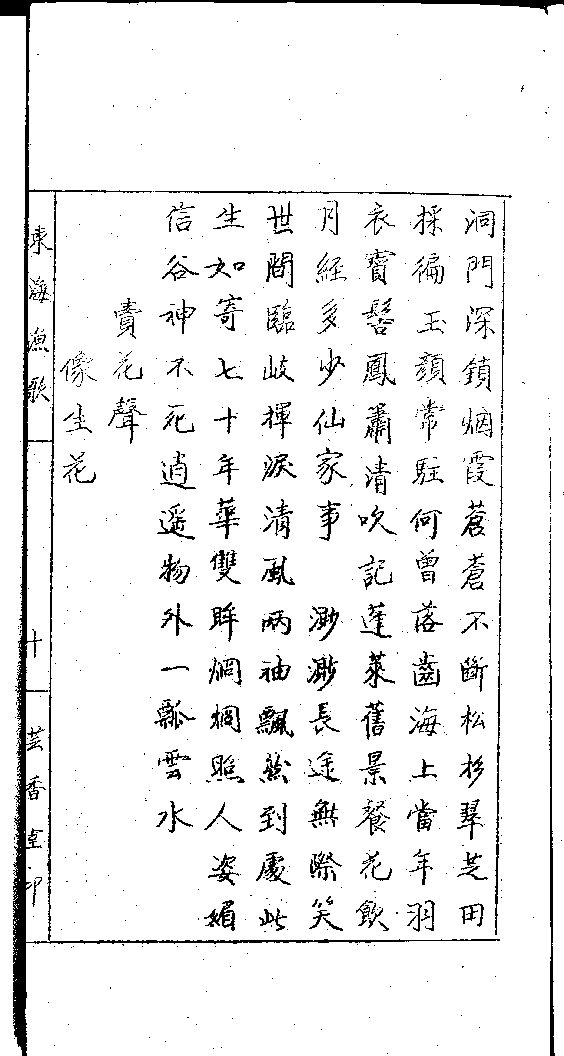 洞門深鎖烟霞蒼蒼不斷松杉翠芝田
採徧玉顏常駐何曾落齒海上當年羽
衣寶髻鳳簫清吹記蓬萊舊景餐花飲
月經多少仙家事　渺渺長途無際笑
世間臨歧揮淚清風兩袖飄然到處此
生如寄七十年華雙眸烱烱照人姿媚
信谷神不死逍遥物外一瓢雲水
賣花聲
像生花
東海漁歌
十
芸香室印